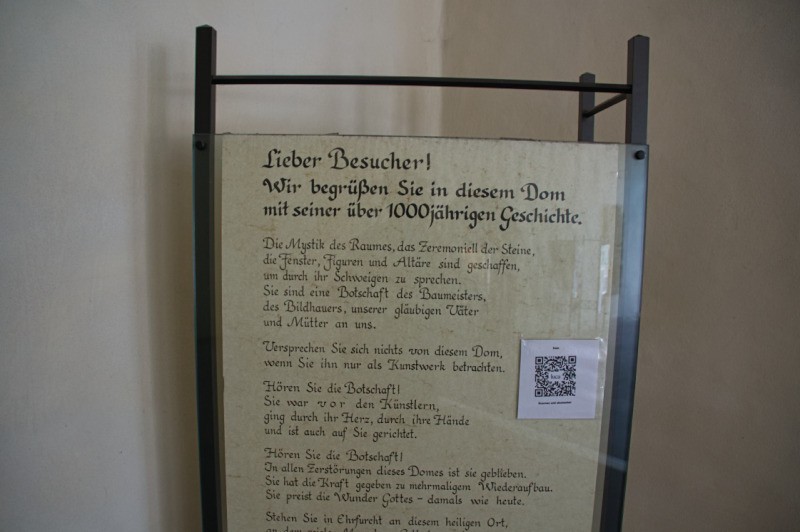 Lieber Besucher!
Wir begrüßen Sie in diesem Dom
mit seiner über 1000jährigen Geschichte.
Die Mystik des Raumes, das Zeremoniell der Steine,
die Fenster, Figuren und Altäre sind geschaffen,
um durch ihr Schweigen zu sprechen.
Sie sind eine Botschaft des Baumeisters,
des Bildhauers, unserer gläubigen Väter
und Mütter an uns.
Versprechen Sie sich nichts von diesem Dom,
wenn Sie ihn nur als Kunstwerk betrachten.
Hören Sie die Botschaft!
Sie war vor den Künstlern,
ging durch ihr Herz, durch ihre Hände
und ist auch auf Sie gerichtet.
Hören Sie die Botschaft!
In allen Zerstörungen dieses Domes ist sie geblieben.
Sie hat die Kraft gegeben zu mehrmaligem Wiederaufbau.
Sie preist die Wunder Gottes – damals wie heute.
Stehen Sie in Ehrfurcht an diesem heiligen Ort,